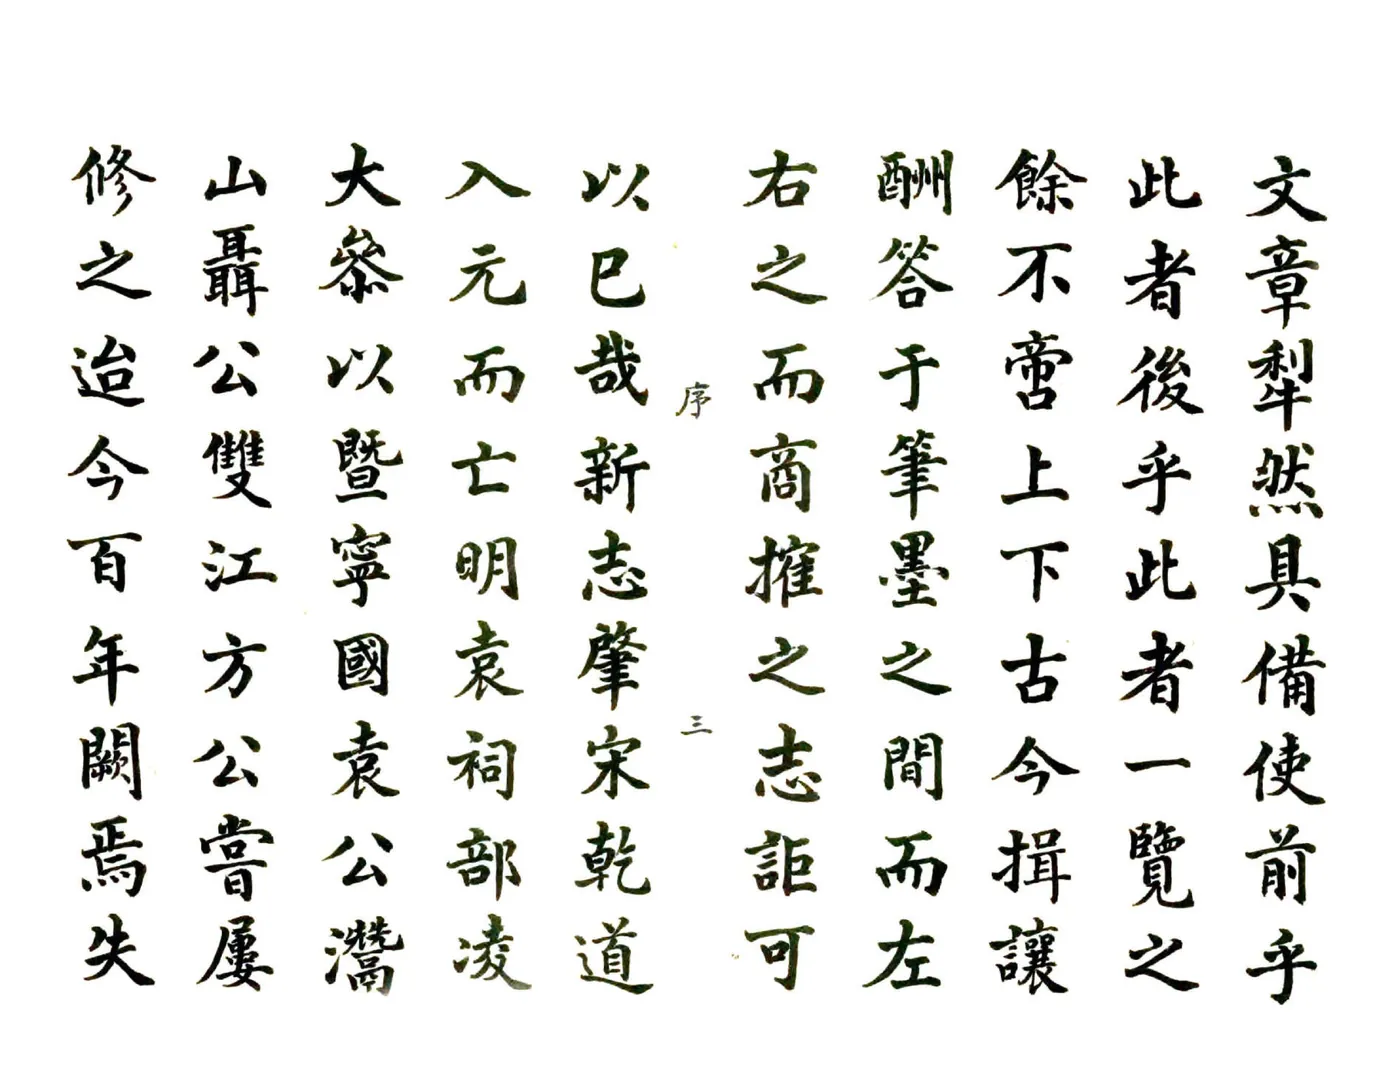 文章犁然具備使前乎
此者後乎此者一覽之
餘不啻上下古今揖讓
酬答于筆墨之間而左
右之而商搉之志詎可
序 三
以巳哉新志肇宋乾道
入元而亡明袁祠部凌
大叅以暨寧國袁公灊
山聶公雙江方公嘗屢
修之迨今百年闕焉失